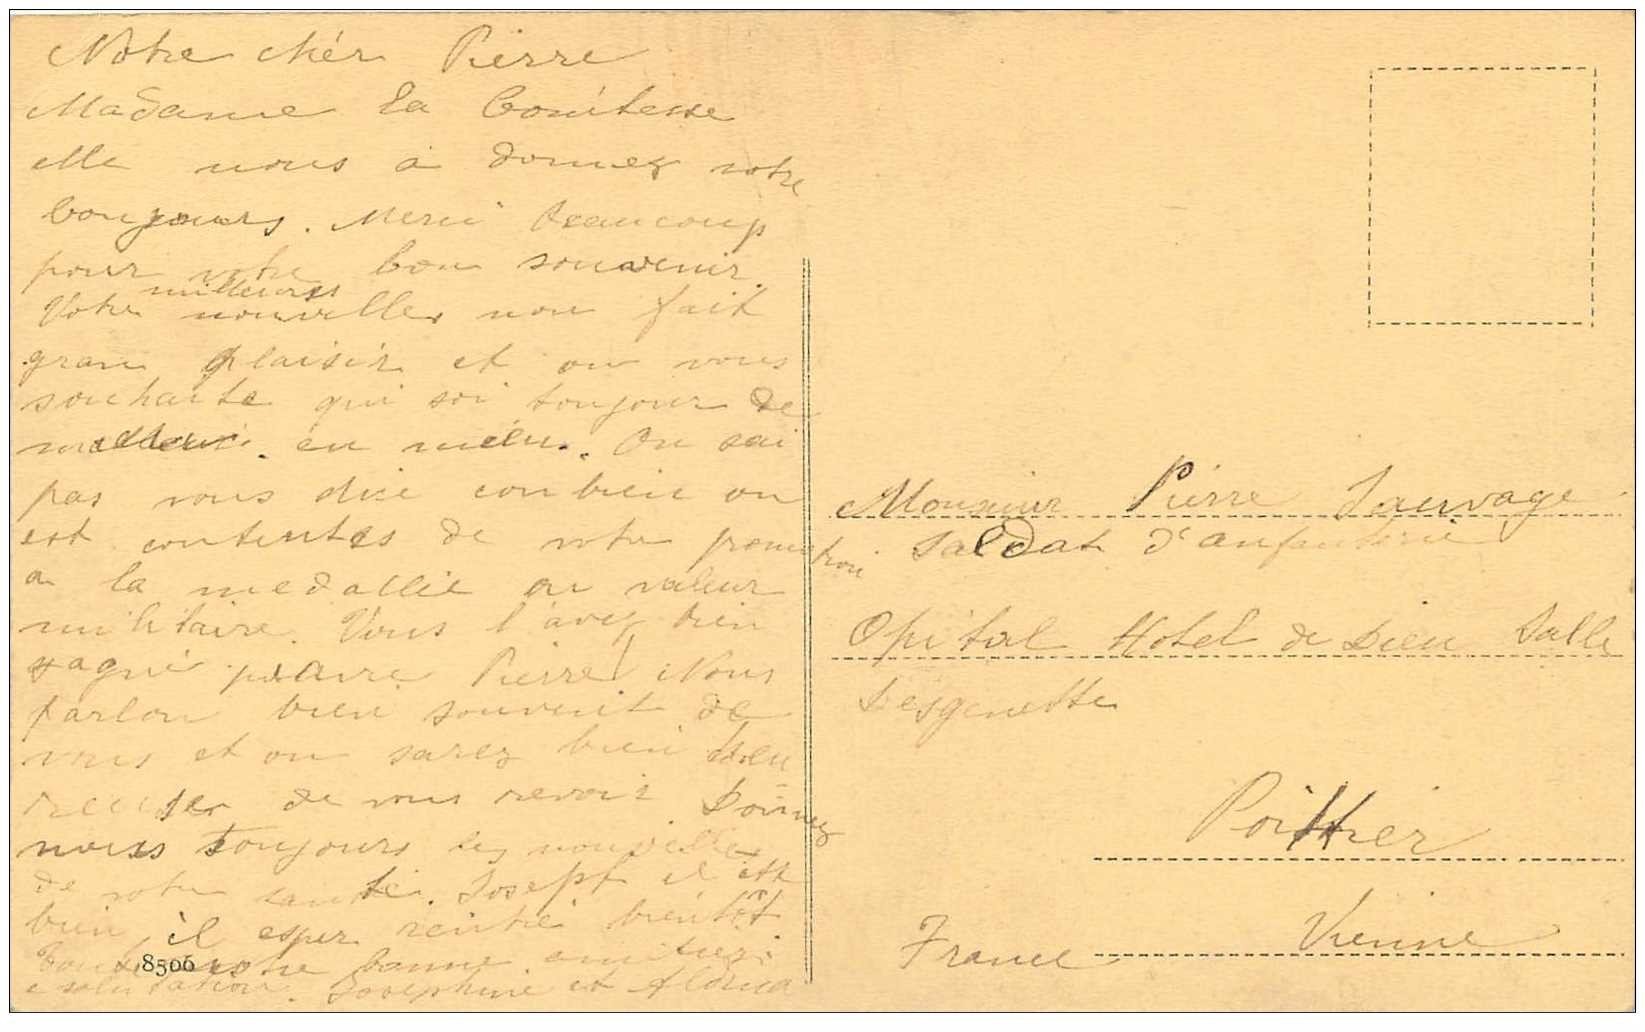 Notre chér Pierre
Madame la Comtesse
elle nous à donnez votre
bonjours. Merci beaucoup
pour votre bon souvenir
milleurs
Votre nouvelles nou fait
gran plaisir et on vous
souhaite qui soi toujour de
en mieu. On sai
pas vous dire conbien on
est contentes de votre promotion
a la medallie ou valeur
militaire. Vous l'avez bien
gagné pauvre Pierre! Nous
parlon bien souvent de
vous et on sarez bien
de vous revoir Donnez
nouss toujours les nouvelles
de votre santé. Joseph il ett
bien, il esper rentré bientôt
notre bonne amitiez
e salutation. Josephine et
8506
Monsieur Pierre Sauvage
Saldat d'anfanterie
Opital Hotel de Dieu Salle
Desgenette
Poittier
Vienne
France